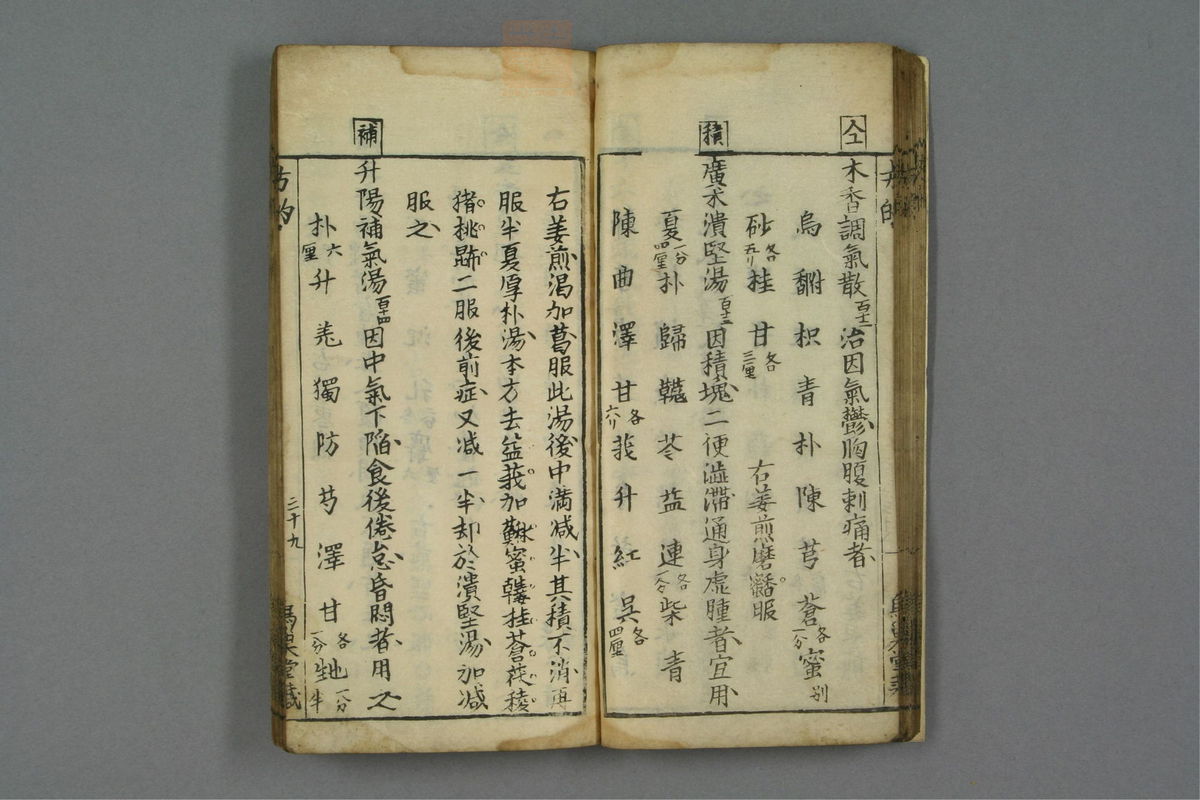 木香調氣散 百十二 治因氣鬱胸腹刺痛者
烏 附 枳 青 朴 陳 芎 蒼 各一分 蜜 别
砂 各五リ 桂 甘 各三厘 右姜煎磨服
積
廣朮潰堅湯 百十三 因積塊二便澁滯通身虚腫者宜用
夏 一分四厘 朴 歸 苓 益 連 各一分 柴 青
陳 曲 澤 甘 各六リ 莪 升 紅 呉 各四厘
右姜煎渴加葛服此湯後中滿减半其積不消再
服半夏厚朴湯本方去益莪加蜜桂蒼茯稜
猪桃二服後前症又减一半却於潰堅湯加减
服之
補
升陽補氣湯 百十四 因中氣下陥食後倦怠昏悶者用之
朴 六厘 升 羌 獨 防 芍 澤 甘 各一分 地 一分半
二十九